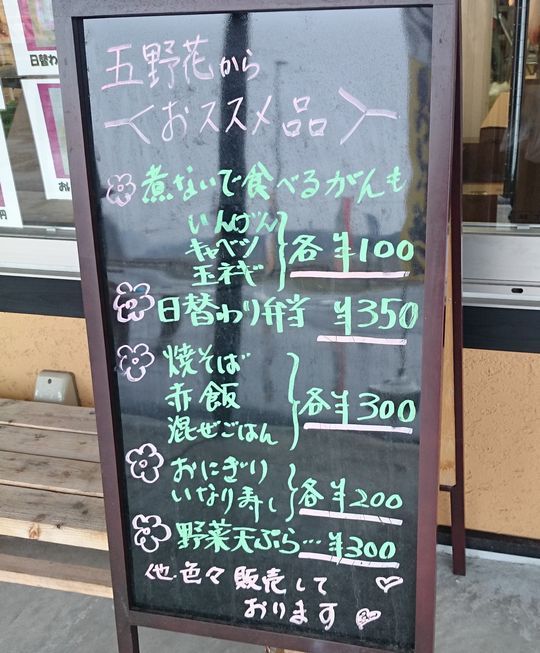 日替わ
五野花から
おススメ品
煮ないで食べるがんも
いんげん
キャベツ
玉ネギ
各¥100
日替わり弁当 ¥350
焼そば
赤飯
混ぜごはん
各¥300
おにぎり
いなり寿し
各¥200
野菜天ぷら…¥300
他色々販売して
おります